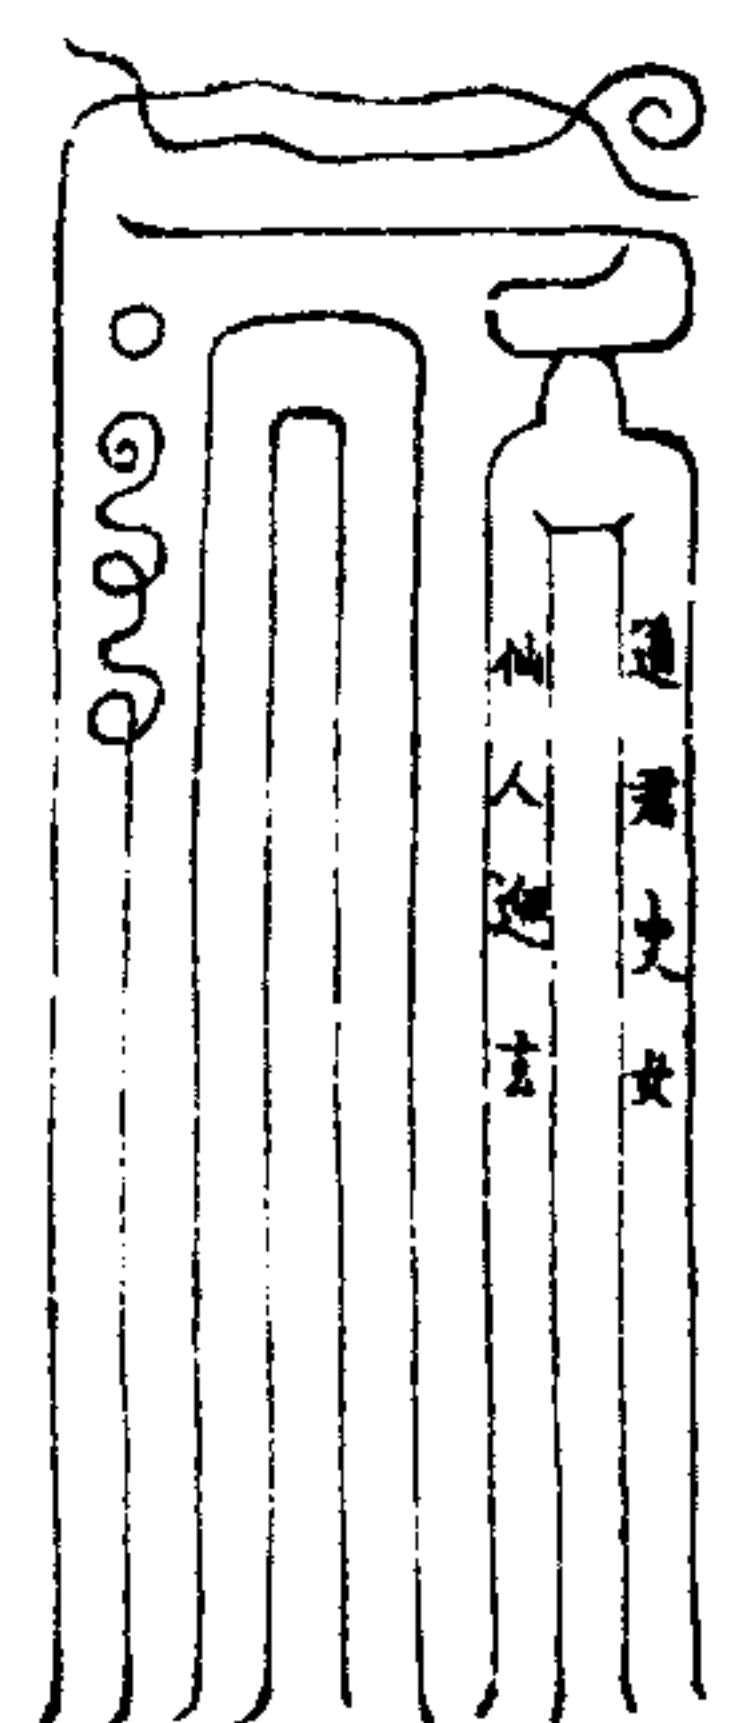 道君丈女
仙人玄